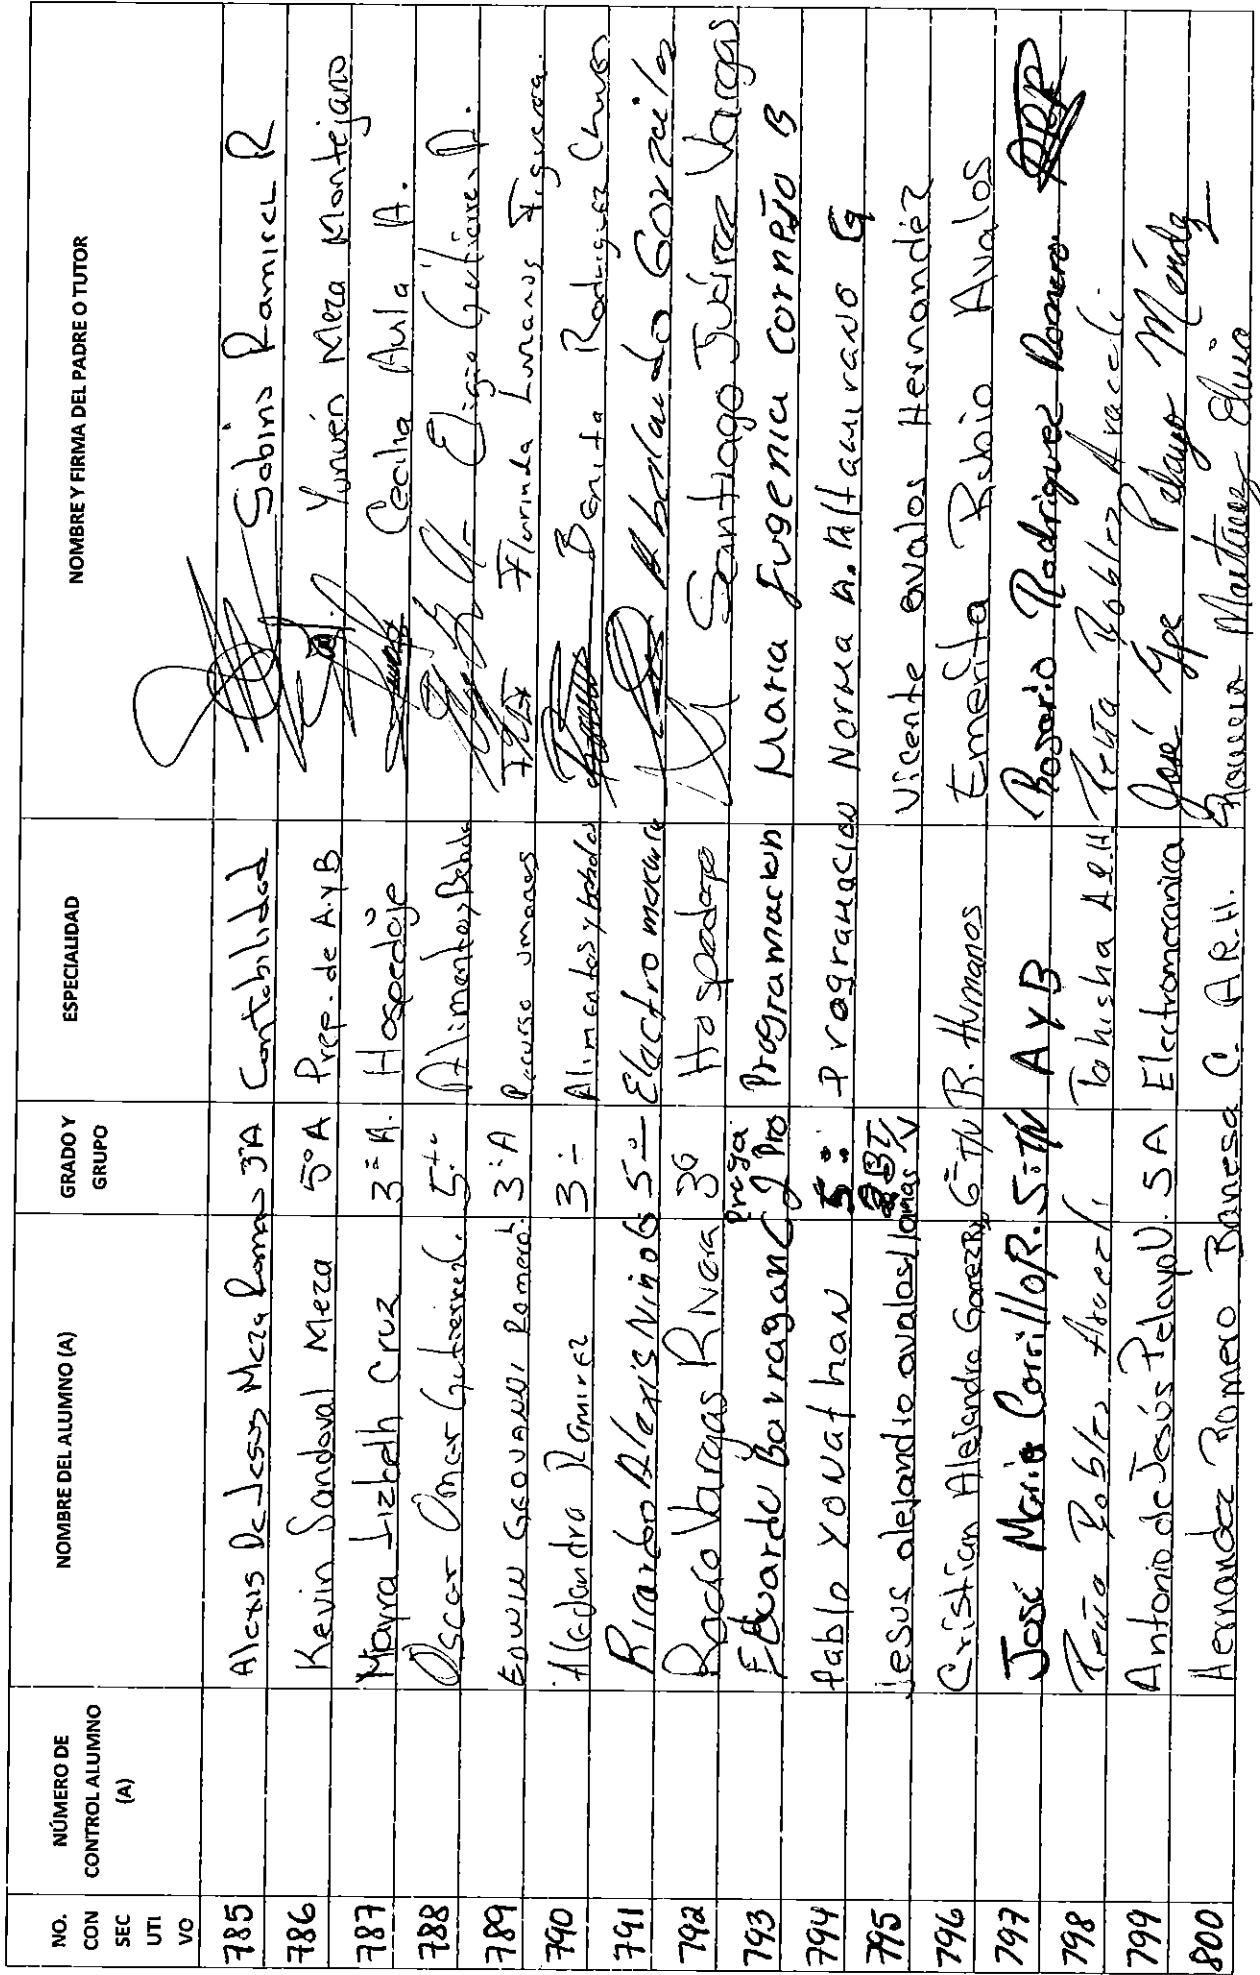 NO. CON SEC UTI VO NÚMERO DE CONTROL ALUMNO (A) NOMBRE DEL ALUMNO (A) GRADO Y GRUPO ESPECIALIDAD NOMBRE Y FIRMA DEL PADRE O TUTOR
785 Alexis De Jesus Meza Ramos 3ºA Contabilidad Sabino Ramirez R
786 Kevin Sandoval Meza 5º A Prep. de A.yB Yunuén Meza Montejano
787 Mayra Lizbeth Cruz 3º A. Hospedaje Cecilia Avla A.
788 Oscar Omar Gutierrez C. 5 Alimentos y Bebida Eligio Gutierrez
789 EDWIN GEOVANNI Romero 3ºA Recurso umanos Florinda Lucanos Figueroa.
790 Alejandra Ramirez 3 Alimentos y bebidas Benita Rodriguez Chavez
791 Ricardo Alexis Nino G 5 Electro mecanica Abelardo Gonzalez
792 Rocio Vargas Rivera 3G Hospedaje Santiago Juárez Vargas
793 Eduardo Barragan C Proga 2 Pro Programacion Maria Eugenia Cornejo B
794 Pablo YONathan 5 Programacion Norma A. Altamirano G
795 Jesus alejandro avalos llamas Vicente avalos Hernandez
796 Cristian Alejandro Gomez R. 6º T/V R. Humanos Emerita Rubio Avalos
797 José Mario Carrillo R. 5º T/V A y B Rosario Rodriguez Romero
798 Robles Araceli A.R.H Robles Araceli
799 Antonio de Jesús Pelayo U. 5A Electromecanica José Gpe Pelayo Méndez
800 Hernandez Romero Banesa C. A.R.H. Martinez Elvia